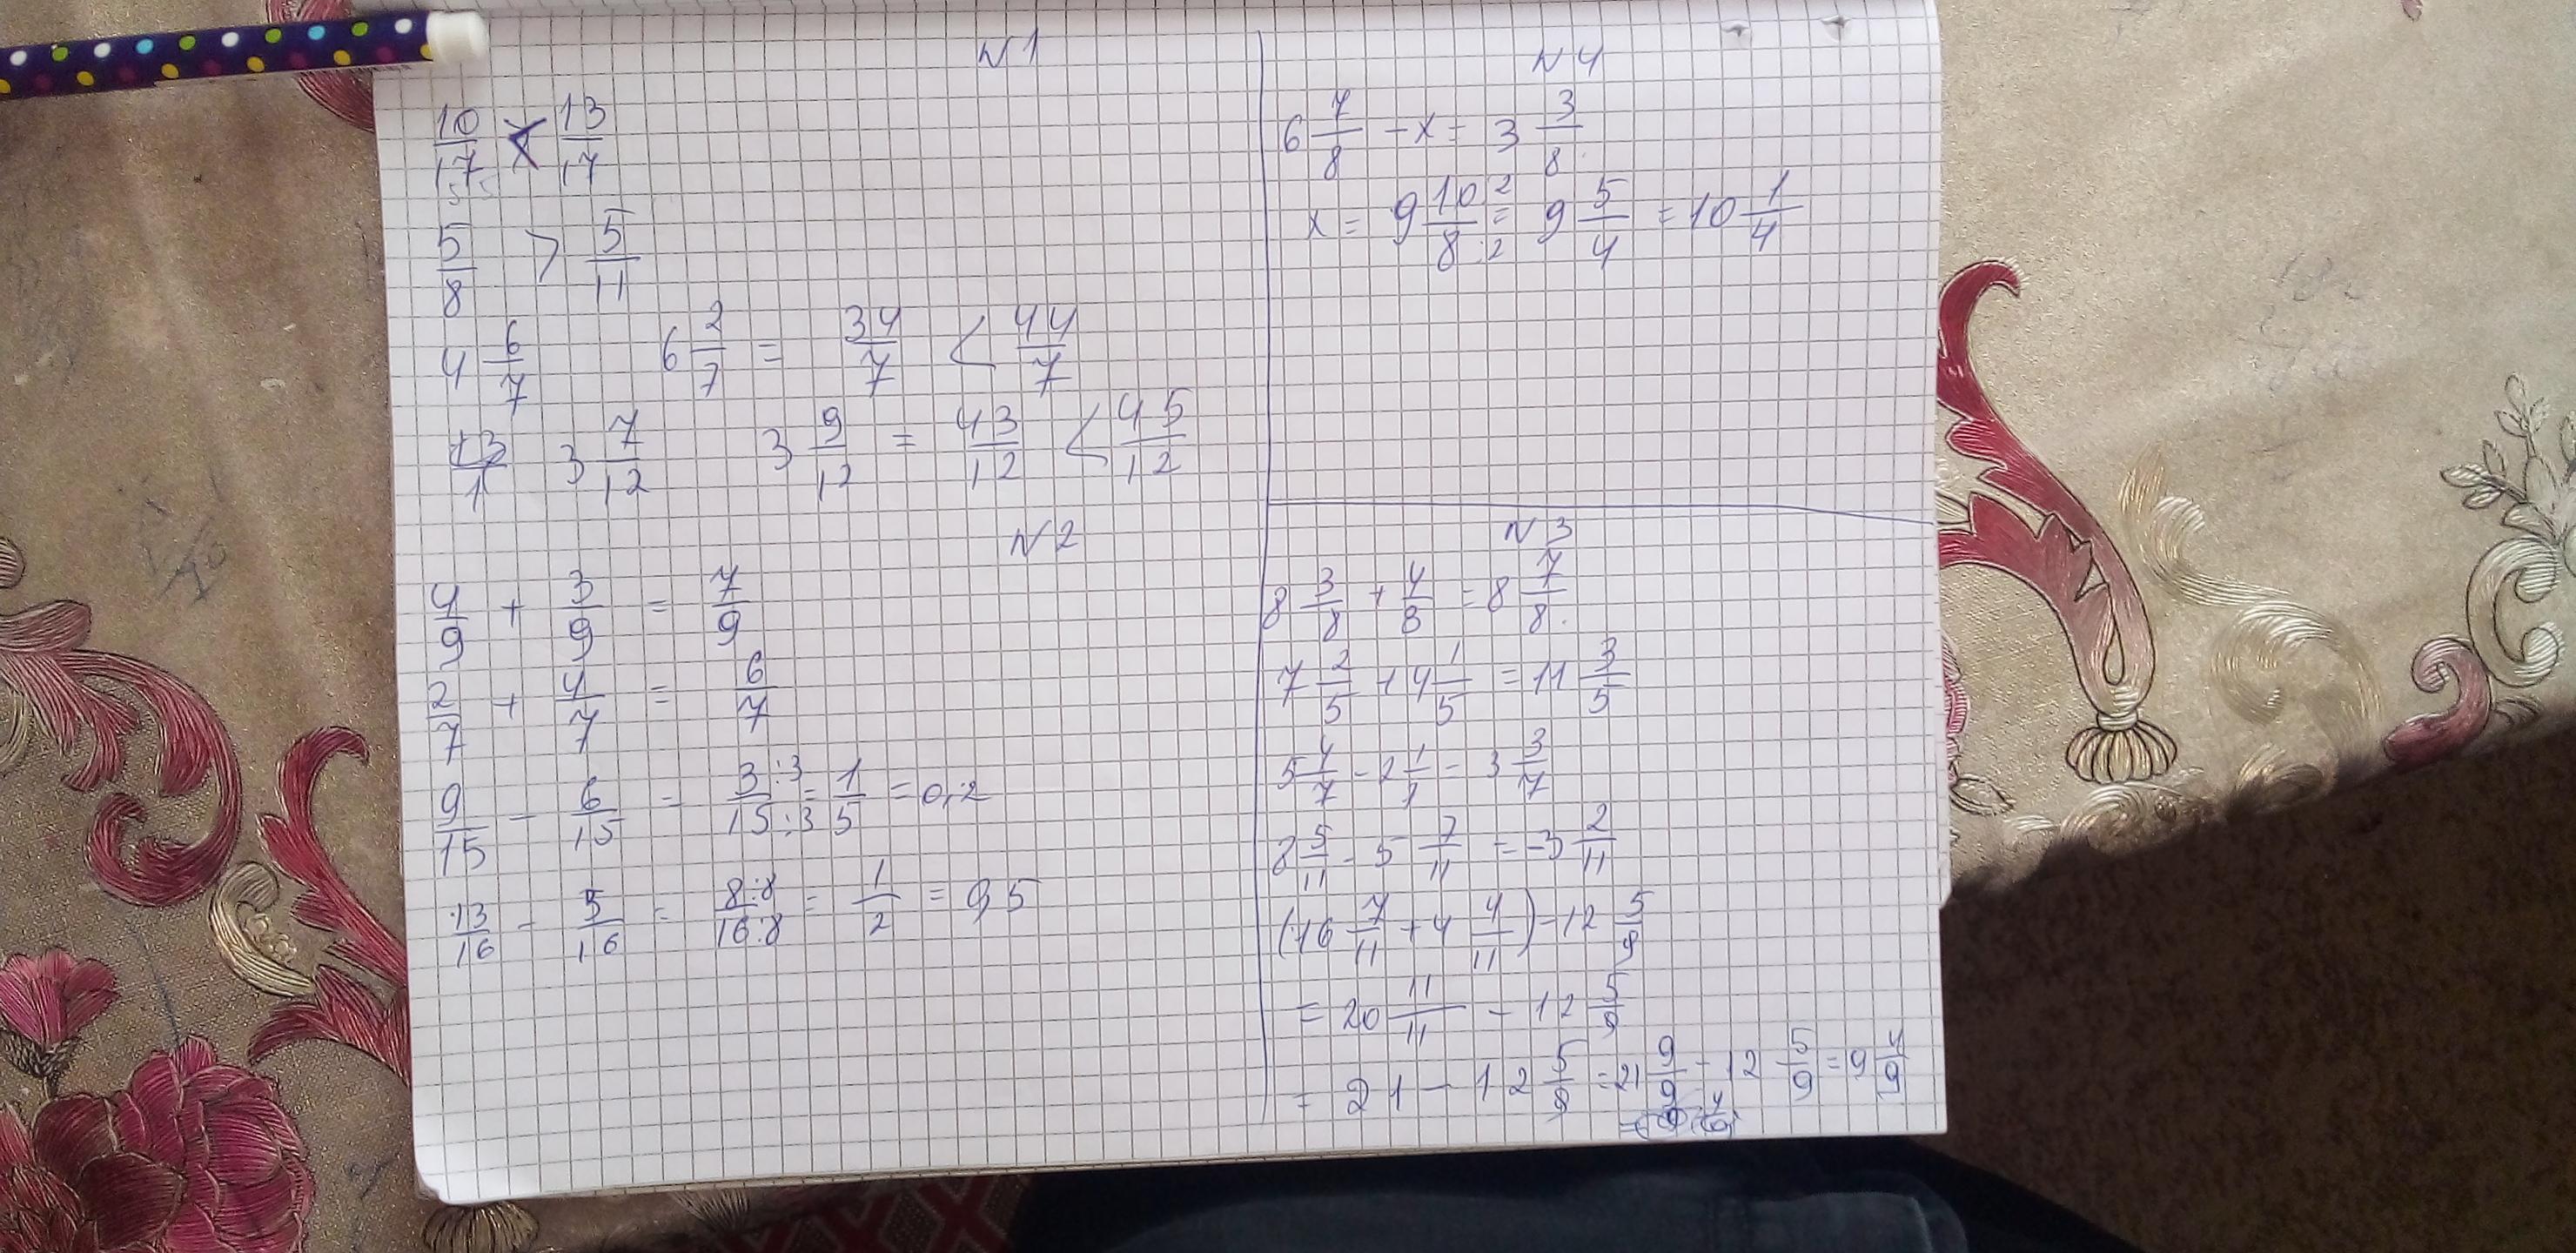 N1
10/17 < 13/17
5/8 > 5/11
4 6/7 6 2/7 = 34/7 < 44/7
3 7/12 3 9/12 = 43/12 < 45/12
N2
4/9 + 3/9 = 7/9
2/7 + 4/7 = 6/7
9/15 - 6/15 = 3:3/15:3 = 1/5 = 0,2
13/16 - 5/16 = 8:8/16:8 = 1/2 = 0,5
N4
6 7/8 - x = 3 3/8
x = 9 10:2/8:2 = 9 5/4 = 10 1/4
N3
8 3/8 + 4/8 = 8 7/8
7 2/5 + 4 1/5 = 11 3/5
5 4/7 - 2 1/7 = 3 3/7
8 5/11 - 5 7/11 = -3 2/11
(16 7/11 + 4 4/11) - 12 5/9
= 20 11/11 - 12 5/9
= 21 - 12 5/9 = 21 9/9 - 12 5/9 = 9 4/9